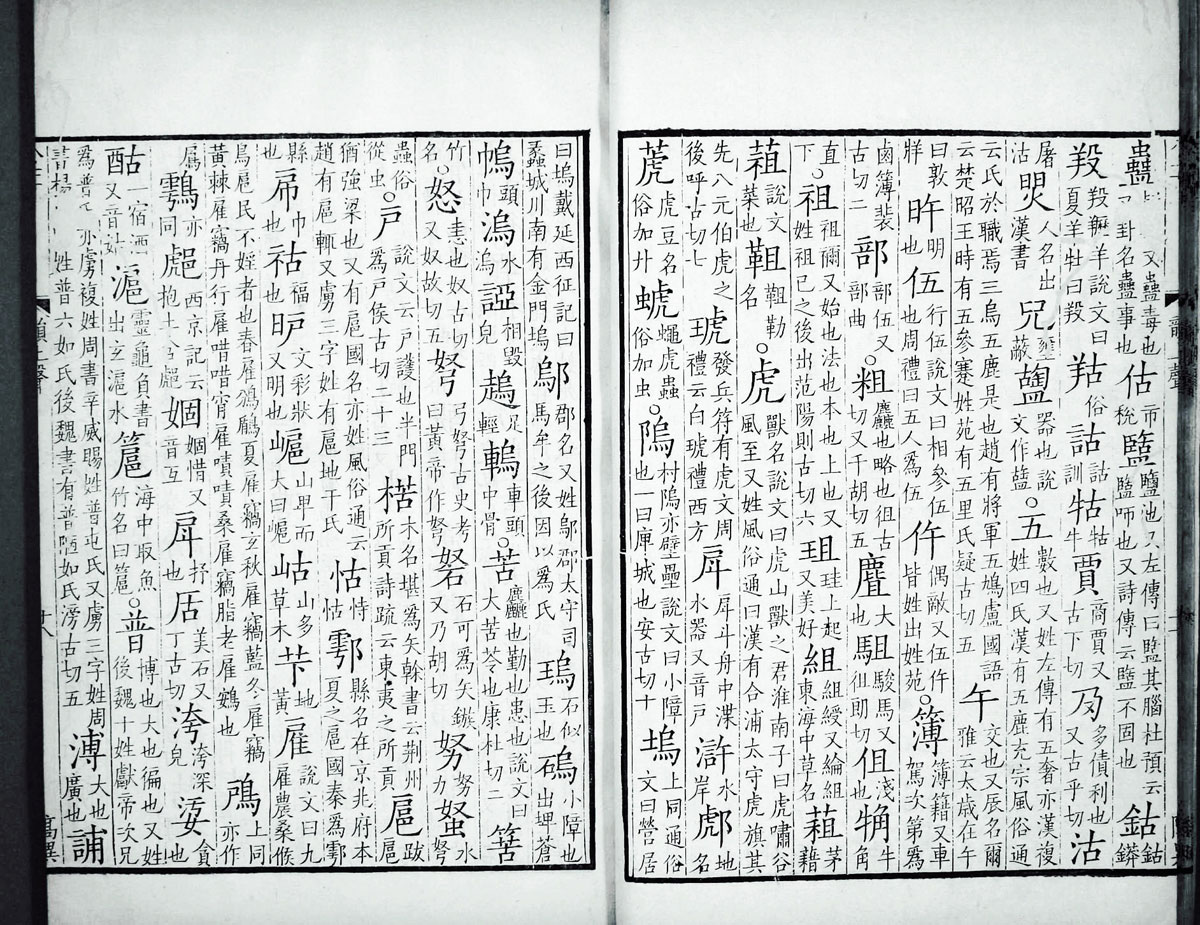 蠱 又蠱毒也 卦名蠱事也 估 市稅 盬 鹽池又左傳曰盬其腦杜預云盬㖩也又詩傳云盬不固也 鈷 鈷鏻
羖 羖䍽羊說文曰夏羊牡曰羖 羖 俗 詁 詁訓 牯 牯牛 賈 商賈又古下切 夃 多債利也又古乎切 沽
屠沽 人名出漢書 壅蔽 器也說文作 ○五 數也又姓左傳有五奢亦漢複姓四氏漢有五鹿充宗風俗通
云氏於職焉三烏五鹿是也趙有將軍五鳩盧國語云楚昭王時有五參蹇姓苑有五里氏疑古切五 午 交也又辰名爾雅云太歲在午
曰敦牂 旿 明也 伍 行伍說文曰相參伍也周禮曰五人爲伍 仵 偶敵又伍仵皆姓出姓苑 ○簿 簿籍又車駕次第爲
鹵簿裴古切二 部 部伍又部曲 ○粗 麤也略也徂古切又千胡切五 麆 大也 駔 駿馬又徂朗切 伹 淺也 牛角
直下 ○祖 祖禰又始也法也本也上也又姓祖己之後出范陽則古切六 珇 珪上起又美好 組 組綬又綸組東海中草名 蒩 茅藉
葅 說文菜也 靻 靻勒名 ○虎 獸名說文曰虎山獸之君淮南子曰虎嘯谷風至又姓風俗通曰漢有合浦太守虎旗其
先八元伯虎之後呼古切七 琥 發兵符有虎文周禮云白琥禮西方 戽 戽斗舟中渫水器又音戶 滸 水岸 地名
萀 虎豆名俗加艹 蝐 蠅虎蟲俗加虫 ○隖 村隖亦壁壘說文曰小障也一曰庳城也安古切十 塢 上同通俗文曰營居
曰塢戴延西征記曰蠡城川南有金門塢 鄔 郡名又姓鄔郡太守司馬牟之後因以爲氏 瑦 石似玉也 小障也出埤蒼
頭巾 溩 水溩皃 相毀 足輕 車頭中骨 ○苦 麤也勤也患也說文曰大苦苓也康杜切二 筶
竹名 ○怒 恚也奴古切又奴故切五 弩 弓弩古史考曰黃帝作弩 砮 石可爲矢鏃又乃胡切 努 努力 水弩
蟲俗從虫 ○戶 說文云戶護也半門爲戶侯古切二十三 楛 木名堪爲矢榦書云荊州所貢詩疏云東夷之所貢 扈 跋扈
猶強梁也又有扈國名亦姓風俗通云趙有扈輒又虜三字姓有扈地干氏 怙 恃怙 鄠 縣名在京兆府本夏之扈國秦爲鄠
縣也 帍 巾也 祜 福也 昈 文彩狀又明也 㠍 山卑而大曰㠍 岵 山多草木 芐 地黃 雇 說文曰九雇農桑候
鳥扈民不婬者也春雇鳻鶞夏雇竊玄秋雇竊藍冬雇竊黃棘雇竊丹行雇唶唶宵雇嘖嘖桑雇竊脂老雇鷃也 鳸 上同亦作
亦同 西京記云 婟 婟惜又音互 戽 抒也 美石又丁古切 洿 洿深皃 貪也
酤 一宿酒又音姑 滬 靈龜負書出玄滬水 簄 海中取魚竹名曰簄 ○普 博也大也徧也又姓後魏十姓獻帝次兄
爲普氏亦虜複姓周書辛威賜姓普屯氏又虜三字姓周書楊 姓普六如氏後魏書有普陋如氏滂古切五 溥 大也廣也 誧